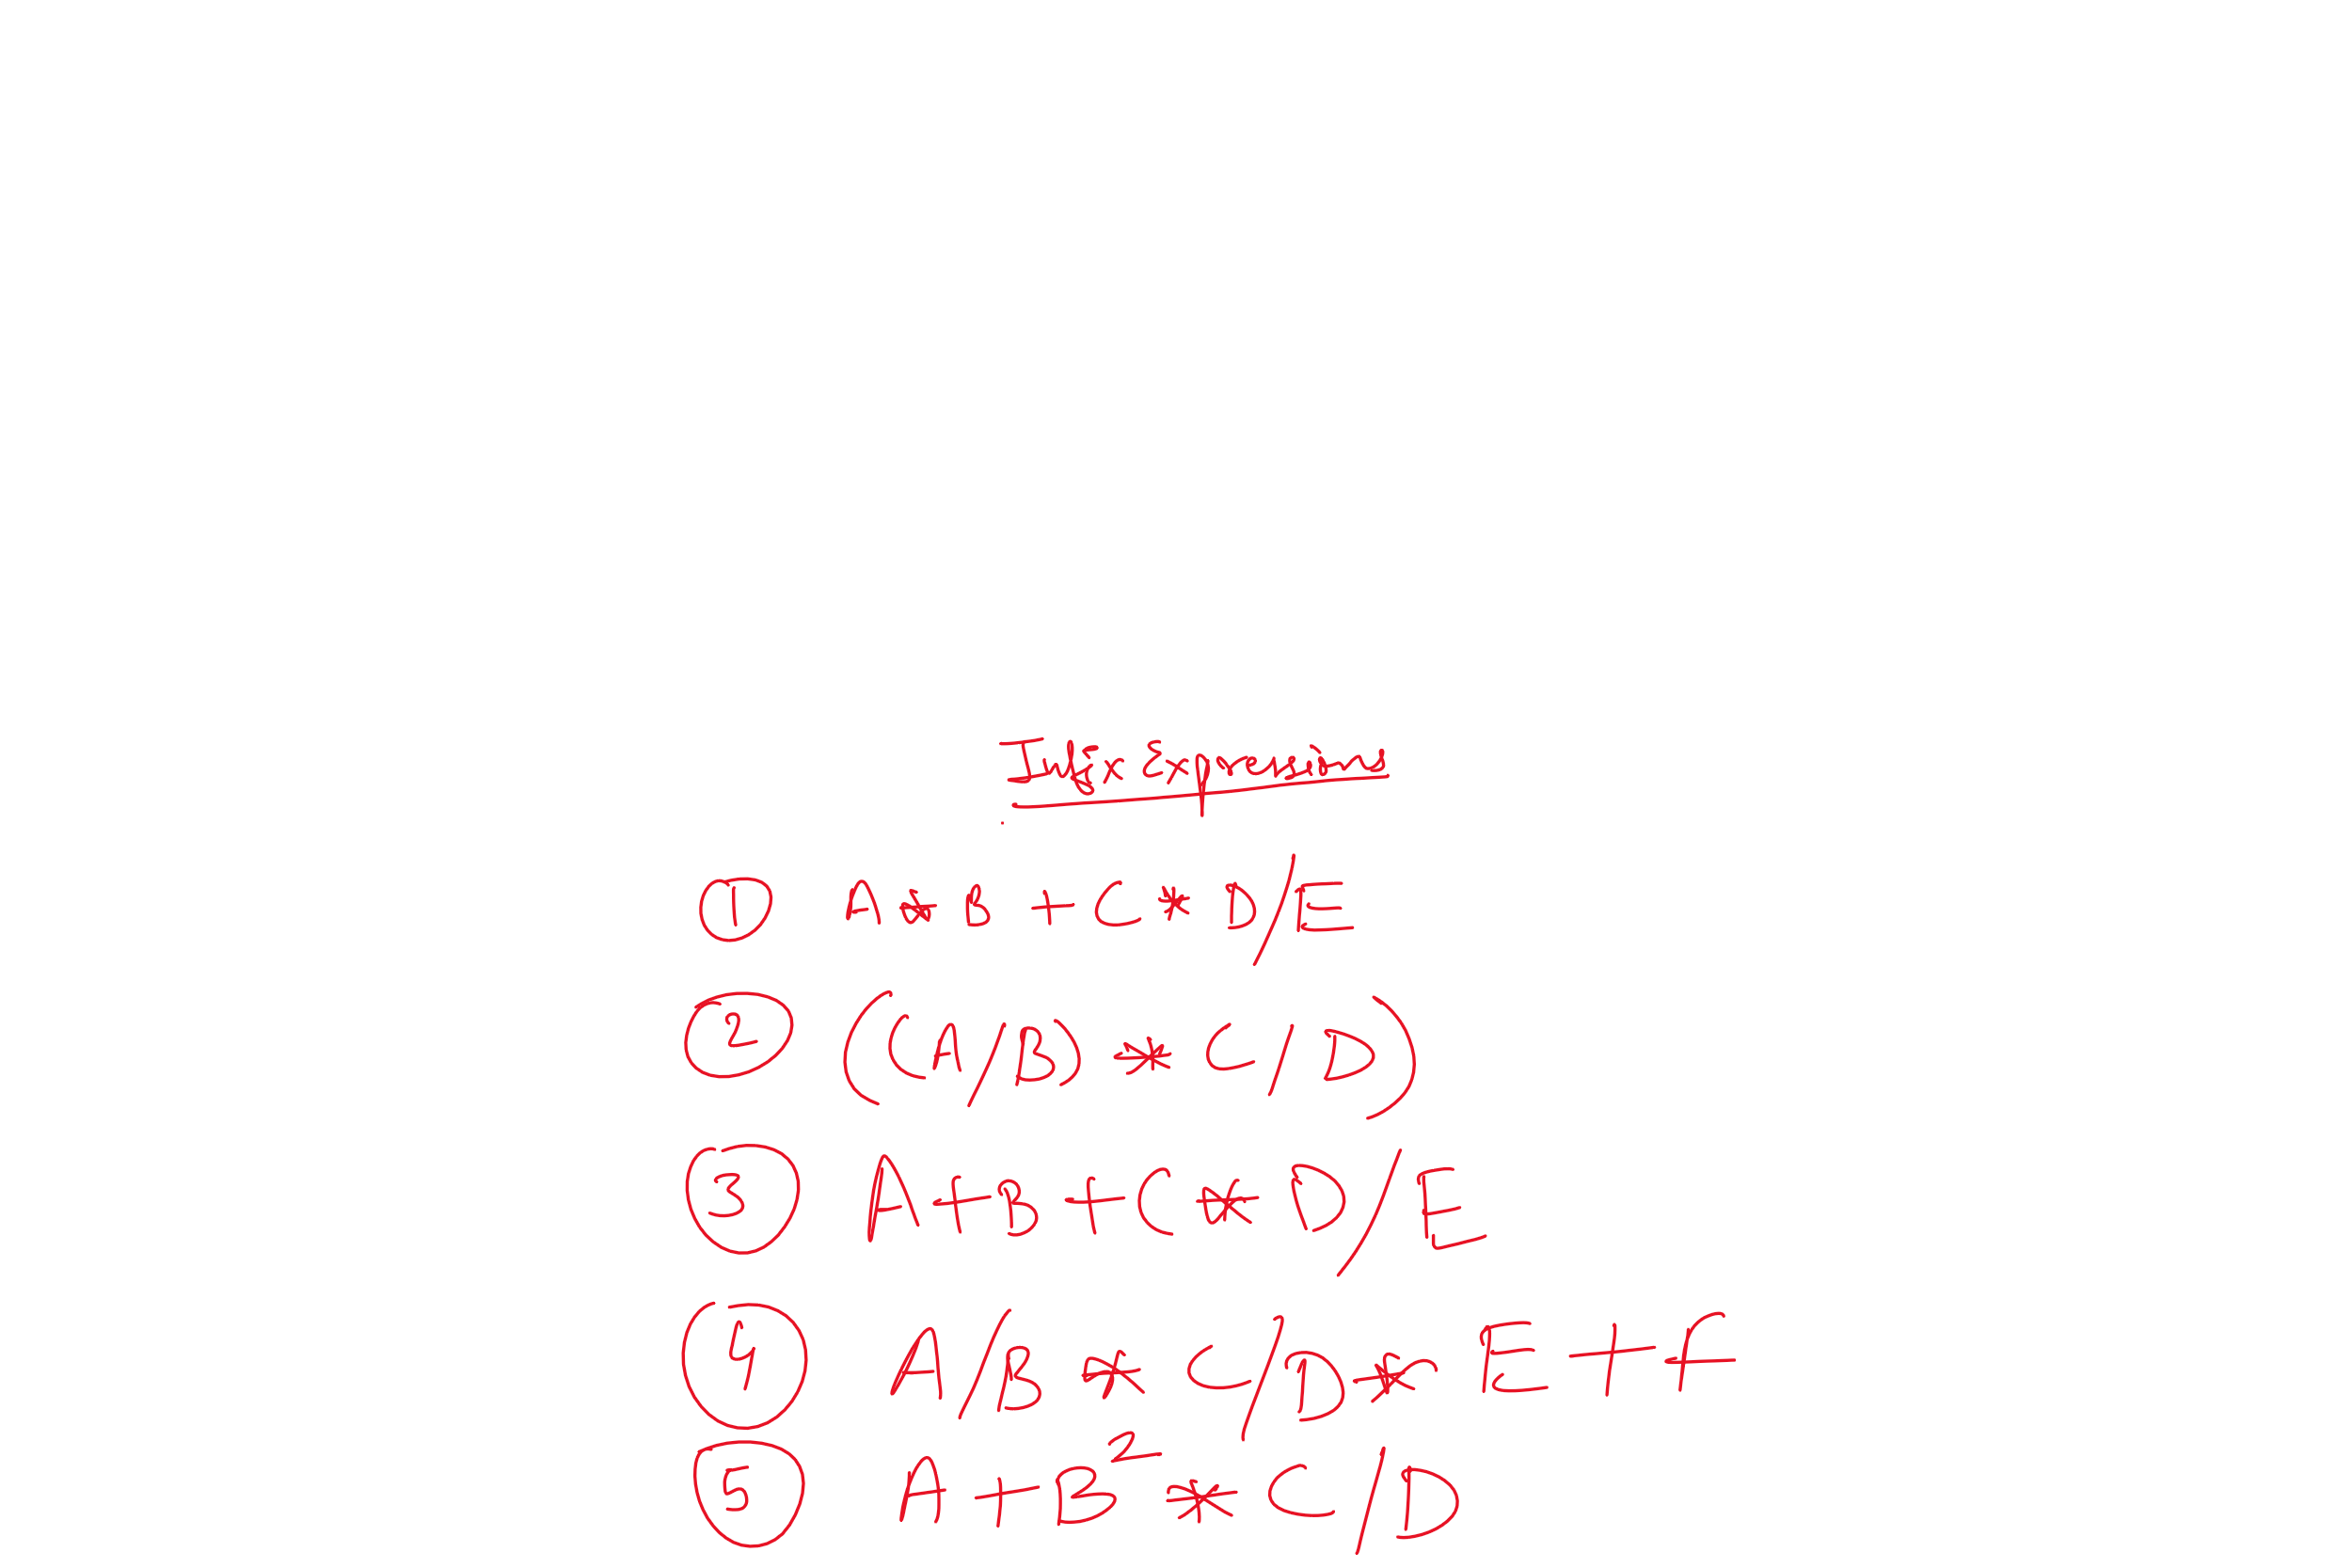 Infix Expressions
① A * B + C * D/E
② ((A/B) * C/D)
③ A+B+C * D/E
④ A/B * C/D * E + f
⑤ A+B² * C/D